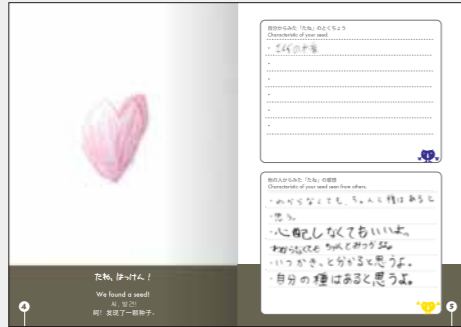 たね、はっけん！
We found a seed!
씨, 발견!
啊！发现了一颗种子。
4
自分からみた「たね」のとくちょう
Characteristic of your seed.
他の人からみた「たね」の感想
Characteristic of your seed seen from others.
・わからなくても、ちゃんと種はあると
・思う。
・心配しなくてもいいよ。
わからなくてもちゃんとみつかるよ
・いつかきっと分かると思うよ。
・自分の種はあると思うよ。
5